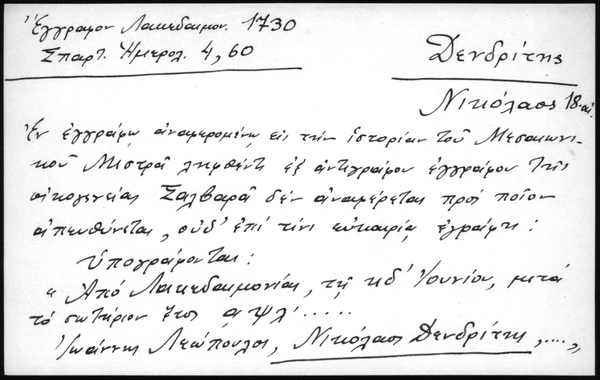 Ἔγγραφον Λακεδαιμον. 1730
Σπαρτ. Ἡμερολ. 4, 60
Δενδρίτης
Νικόλαος 18. αἰ.
Ἐν ἐγγράφῳ ἀναφερομένῳ εἰς τὴν ἱστορίαν τοῦ Μεσαιωνι-
κοῦ Μιστρᾶ ληφθέντι ἐξ ἀντιγράφου ἐγγράφου τῆς
οἰκογενείας Σαλβαρᾶ δὲν ἀναφέρεται πρὸς ποῖον
ἀπευθύνεται, οὐδ' ἐπὶ τίνι εὐκαιρίᾳ ἐγράφη:
Ὑπογράφονται:
« Ἀπό Λακεδαιμονίας, τῇ κδ' Ἰουνίου, μετά
τό σωτήριον ἔτος αψλ'.....
Ἰωάννης Λεόπουλος, Νικόλαος Δενδρίτης,....»